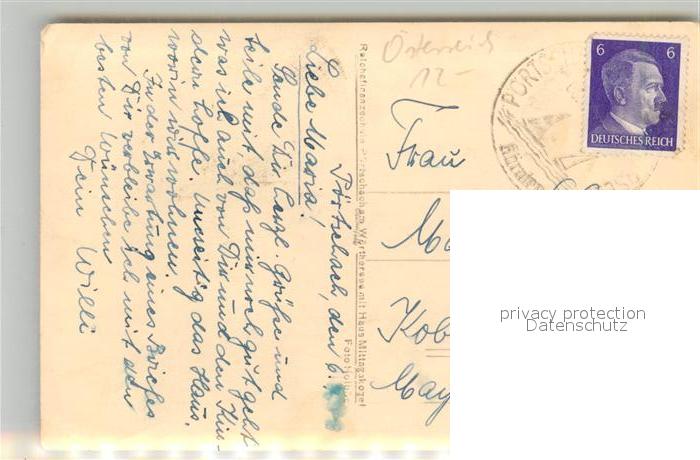 Pörtschach, den 6.
Liebe Maria!
Sende Dir herzl. Grüße und
teile mit daß mir noch gut geht
was ich auch von Dir und den Kin-
dern hoffe. umseitig das Haus,
worin wir wohnen.
In der Erwartung eines Briefes
von Dir verbleibe ich mit den
besten Wünschen
Dein Willi
Reichsfinanzschule Pörtschach am Wörthersee mit Haus Mittagskogel
Österreich
12-
6 6
DEUTSCHES REICH
Frau
Kob
May
privacy protection
Datenschutz